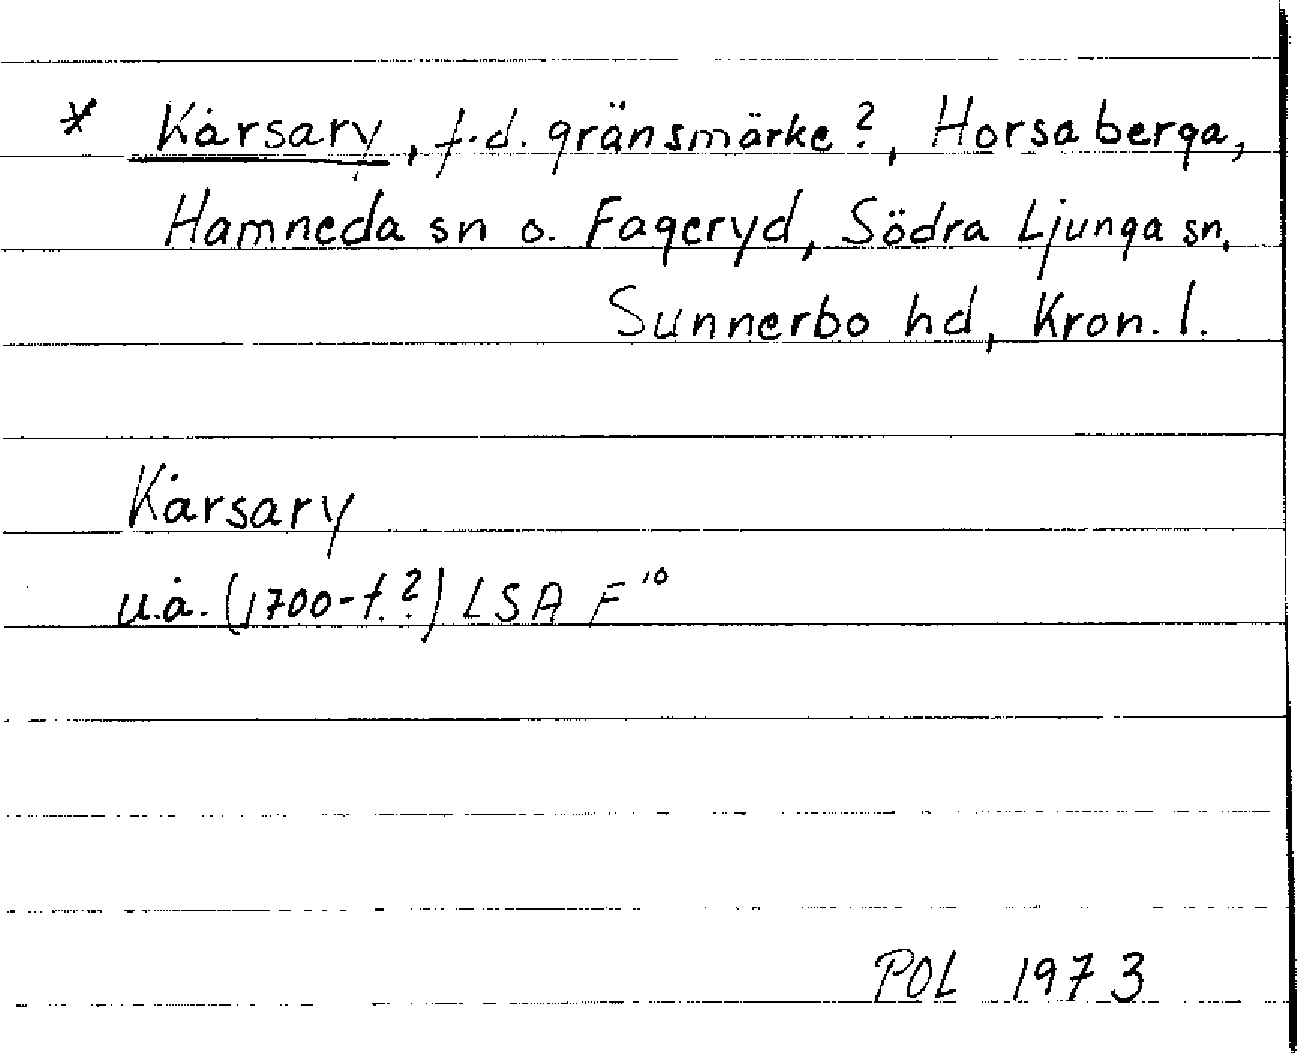 * Kårsary, f.d. gränsmärke?, Horsaberga,
Hamneda sn o. Fageryd, Södra Ljunga sn,
Sunnerbo hd, Kron. l.
Kårsary
u.å. (1700-t.?) LSA F¹⁰
POL 1973